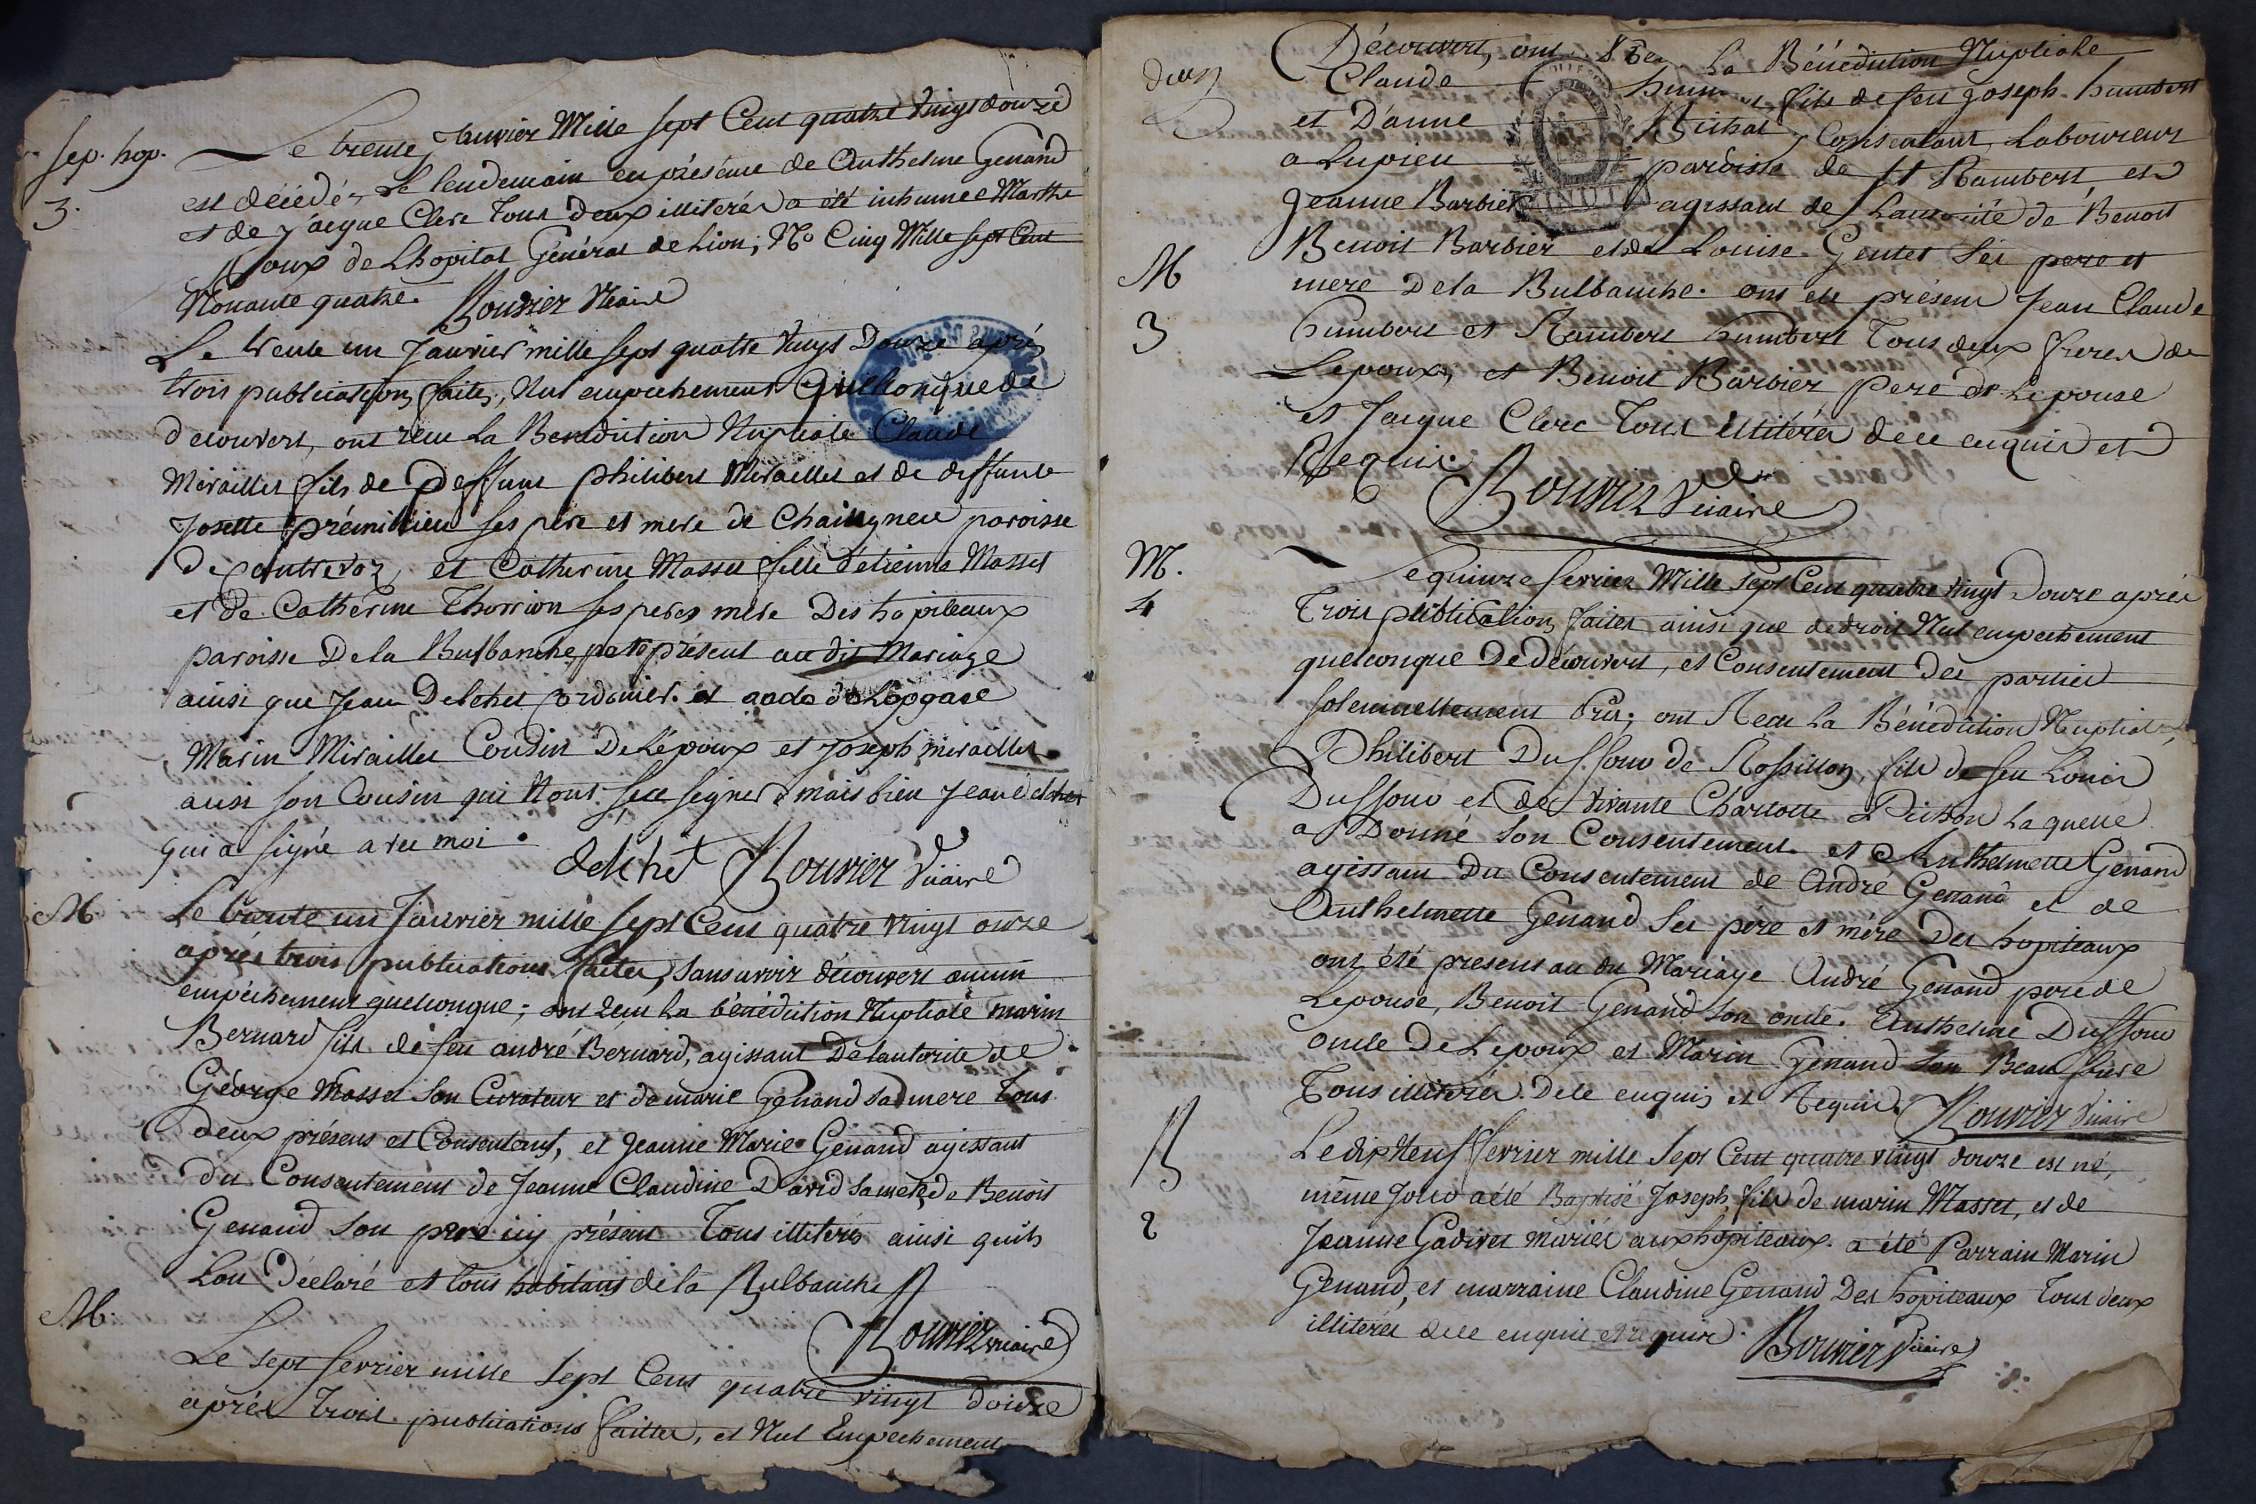 sep. hop.
3.
Le trente Janvier Mille sept Cent quatre vingt douze
est décédée, Le lendemain en présence de Anthelme Genand
et de jacque Clerc Tous deux illiterés a été inhumée Marthe
Roux de Lhopital Général de Lion; No Cinq Mille sept Cent
Nonante quatre. Bouvier Vicaire
Le trente un Janvier mille sept quatre vingt Douze après
trois publications faites, Nul empechement quelconque de
decouvert, ont recu La Benediction Nuptiale Claude
Miraillet fils de Deffunt philibert Miraillet et de deffunte
Josette prémillieu ses père et mere de Chaingneu paroisse
de Contrevoz, et Catherine Masset fille d'etienne Masset
et de Catherine Thorrion ses peres mere Des hopiteaux
paroisse De la Burbanche présent au dit Mariage
ainsi que Jean Delchet cordonier. et
Marin Miraillet Cousin De L'époux et joseph miraillet
ausi son Cousin qui N'ont sceu signer mais bien Jean delchet
qui a signé avec moi. delchet Bouvier Vicaire
M
Le trente un Janvier mille sept Cent quatre vingt onze
après trois publications faites, sans avoir découvert aucun
empêchement quelconque; ont recu La bénédiction Nuptiale marin
Bernard fils de feu andré Bernard, agissant De lautorité de
George Masset son Curateur et de marie Genand sa mere Tous
deux présens et Consentans, et Jeanne Marie Genand agissant
du Consentement de Jeanne Claudine David sa mere, de Benoit
Genand son pere icy présent Tous illiterés ainsi quils
Lon Déclaré et tous habitans de la Bulbanche
Bouvier vicaire
M.
Le sept fevrier mille sept Cent quatre vingt douze
après trois publications faittes, et Nul Empechement
Découvert, ont La Bénédiction Nuptiale
Claude fils de feu joseph humbert
et D'anne Michat, Consentant, Laboureur
a Lupieu paroisse de St Rambert et
Jeanne Barbier agissant de Lautorité de Benoit
Benoit Barbier et de Louise Gentet ses pere et
M
3
mere De la Bulbanche. ont été présent Jean Claude
humbert et Rambert humbert Tous deux freres de
Lepoux, et Benoit Barbier, pere de Lepouse
et Jacque Clerc Tous illitérés de ce enquis et
Requis. Bouvier Vicaire
M.
4
Le quinze fevrier Mille sept Cent quatre vingt Douze après
Trois publications faites ainsi que de droit Nul empechement
quelconque De découvert, et Consentement Des parties
solemnellement Pris; ont Recu La Bénédiction Nuptiale
Philibert Dufour de Rossillon, fils de feu Louis
Duffour et de vivante Charlotte Pichon La quelle
a Donné son Consentement. et Anthelmette Genand
agissant Du Consentement de André Genand et de
Anthelmette Genand ses père et mére Des hopiteaux
ont été presens au du Mariage André Genand pere de
Lepouse, Benoit Genand son oncle. Anthelme Duffour
oncle De Lepoux et Marin Genand son Beau frere
Tous illitérés. De ce enquis et Requis. Bouvier Vicaire
B
2
Le dix Neuf fevrier mille sept Cent quatre vingt douze est né,
même Jour a été Baptisé Joseph, fils de marin Masset, et de
Jeanne Gadivet mariés aux hopiteaux. a été Parrain Marin
Genand, et marraine Claudine Genand Des hopiteaux Tous deux
illiterés de ce enquis et requis. Bouvier Vicaire